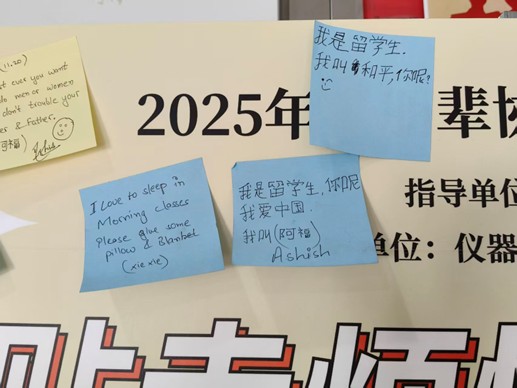 (11.20)
st ever you want
do men or women
don't trouble your
er & Father.
阿福)
我是留学生.
我叫和平,你呢?
2025年
辈协
指导单位
单位：仪器
I Love to sleep in
Morning classes
Please give some
pillow & Blanked
(xie xie)
我是留学生,你呢
我爱中国.
我叫(阿福)
Ashish
贴走烦恼